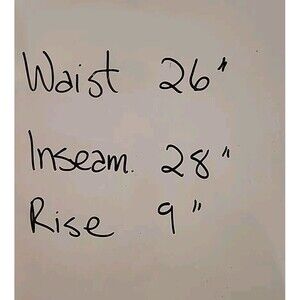 Waist 26"
Inseam. 28"
Rise 9"